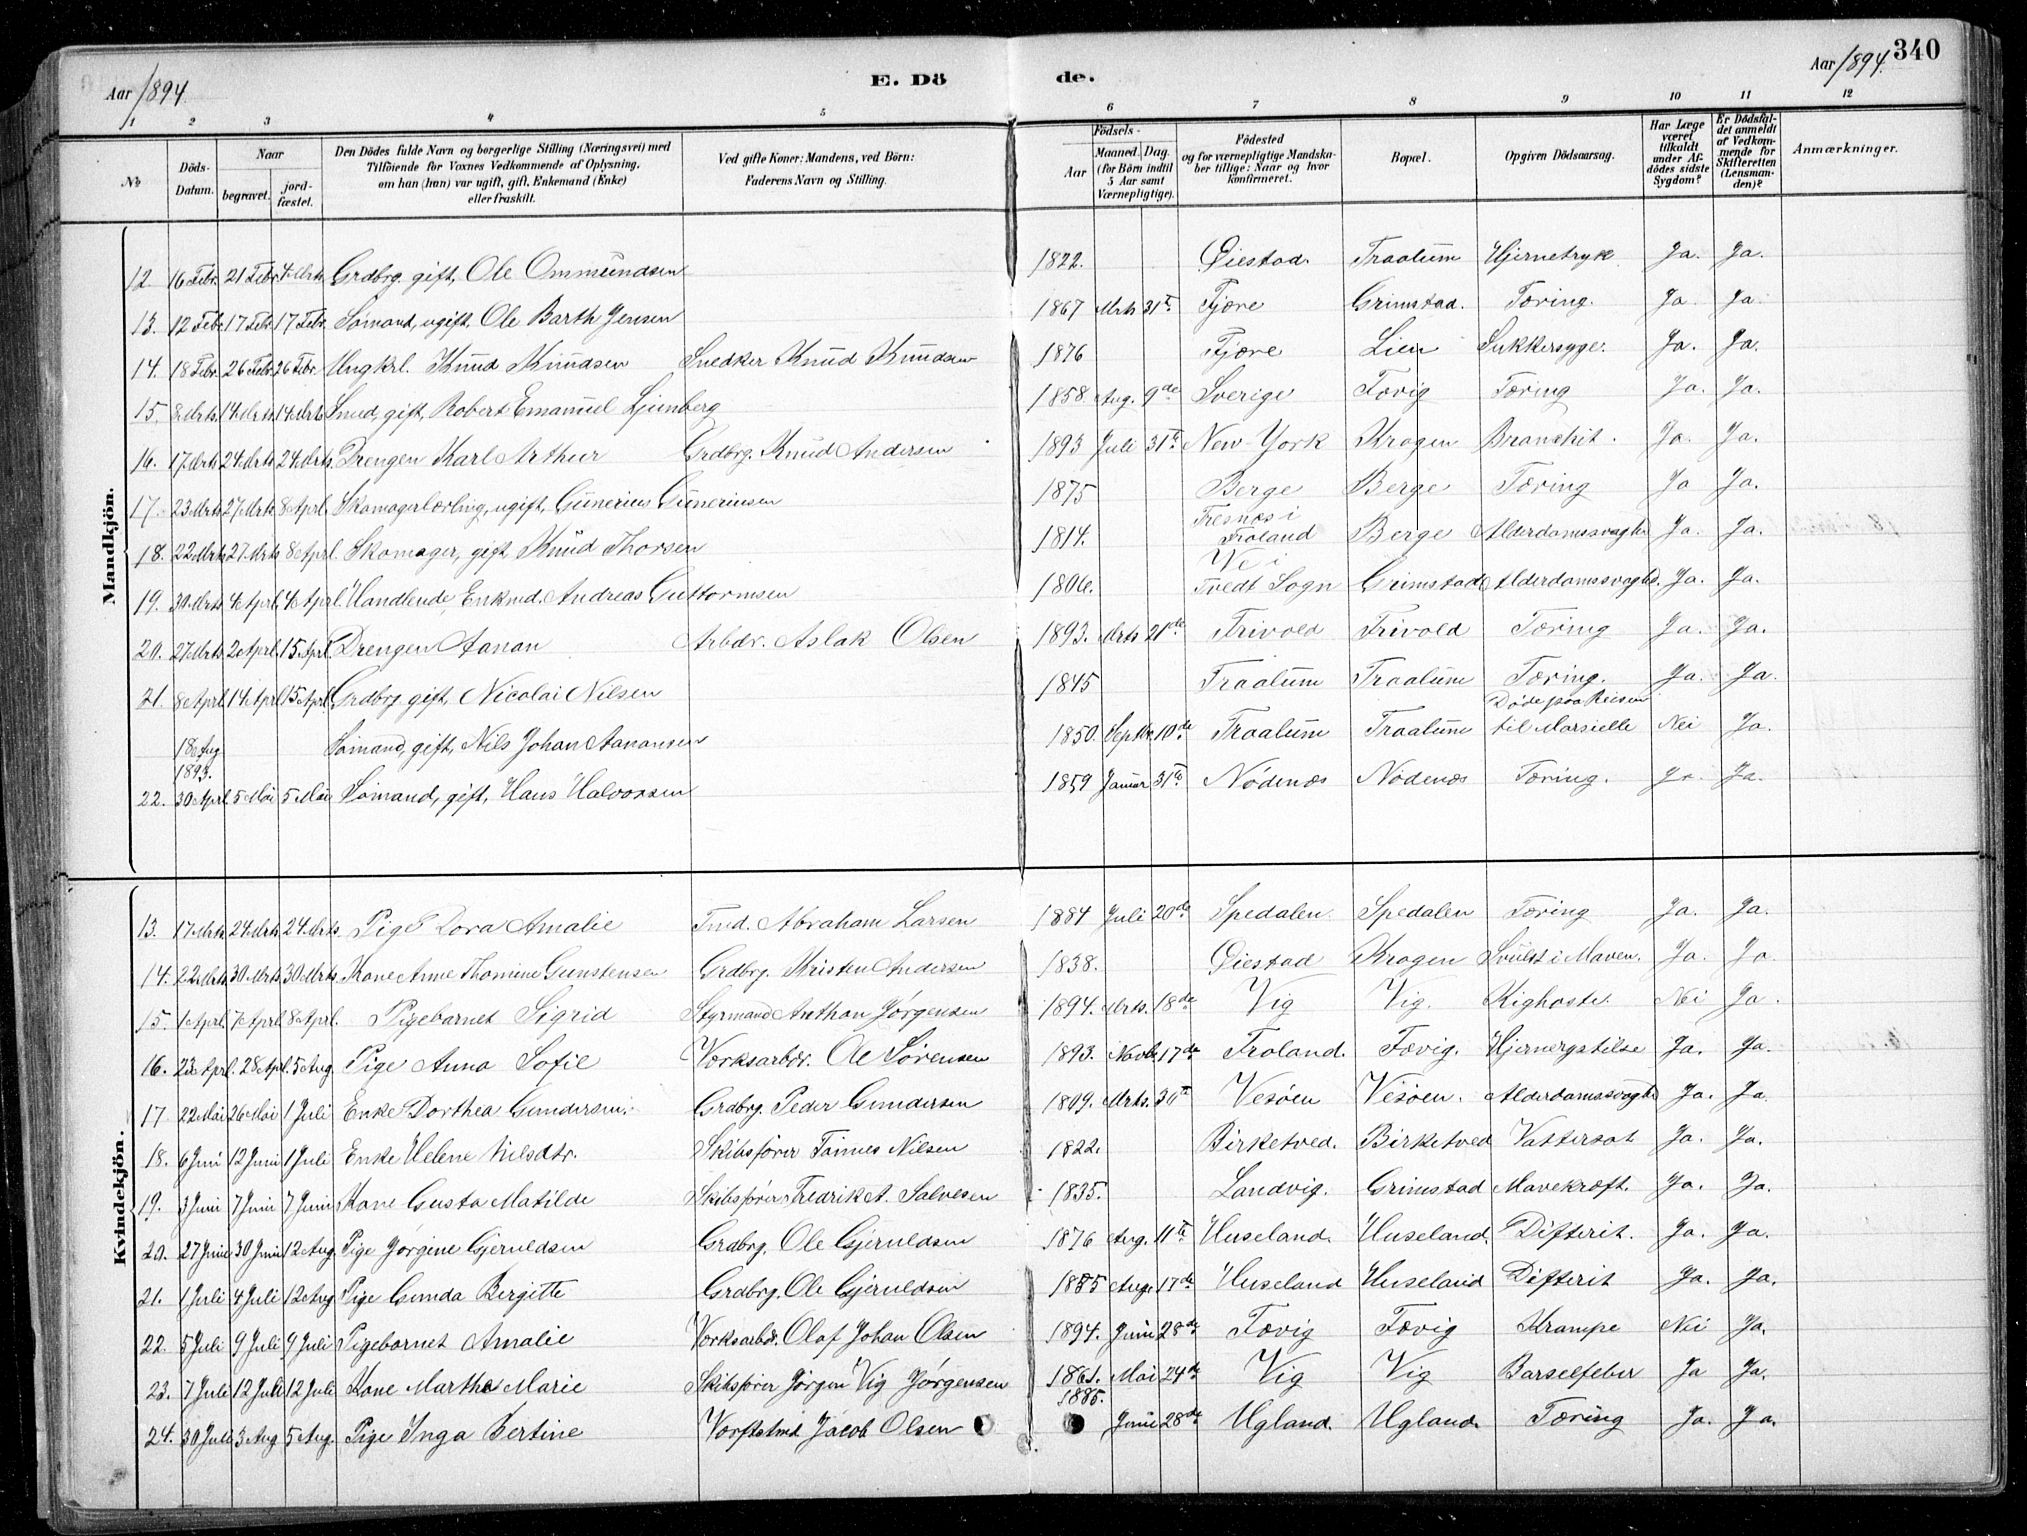 Aar 1894.
E. Döde.
Aar 1894. 340
1 2 3 4 5 6 7 8 9 10 11 12
No
Döds-Datum.
Naar
begravet.
jordfæstet.
Den Dödes fulde Navn og borgerlige Stilling (Næringsvei) med Tilföiende for Voxnes Vedkommende af Oplysning, om han (hun) var ugift, gift, Enkemand (Enke) eller fraskilt.
Ved gifte Koner: Mandens, ved Börn: Faderens Navn og Stilling.
Födsels-
Aar
Maaned. Dag.
(for Börn indtil 5 Aar samt Værnepligtige).
Födested og for værnepligtige Mandskaber tillige: Naar og hvor konfirmeret.
Bopæl.
Opgiven Dödsaarsag.
Har Læge været tilkaldt under Afdödes sidste Sygdom?
Er Dödsfaldet anmeldt af Vedkommende for Skifteretten (Lensmanden)?
Anmærkninger.
Mandkjön.
12. 16 Febr. 21 Febr. 4 Mrts Grdbrg. gift, Ole Ommundsen 1822. Øiestad. Traalum Hjernetryk Ja. Ja.
13. 12 Febr 17 Febr 17 Febr. Sömand, ugift, Ole Barth Jensen 1867 Mrts 31te Fjære Grimstad. Tæring. Ja Ja
14. 18 Febr. 26 Febr. 26 Febr. Ungkrl. Knud Knudsen Snedker Knud Knudsen 1876 Fjære Lien Sukkersyge. Ja. Ja.
15. 8 Mrts. 14 Mrts 14 Mrts Smed, gift, Robert Emanuel Ljunberg 1858. Aug. 9de Sverige Fævig Tæring Ja. Ja.
16. 17 Mrts 24 Mrts 24 Mrts. Drengen Karl Arthur Grdbrg. Knud Andersen 1893 Juli 31te New-York Kragen Bronchit. Ja. Ja.
17. 23 Mrts 27 Mrts 8 Aprl. Skomagerlærling, ugift, Gunerius Guneriusen 1875 Berge Berge Tæring Ja Ja.
18. 22 Mrts 27 Mrts 8 Aprl. Skomager, gift Knud Thorsen 1814. Fresnæs i Froland Berge Alderdomssvaghd Ja. Ja.
19. 30 Mrts 4 Aprl. 4 Aprl. Handlende, Enkmd. Andreas Guttormsen 1806. Ve i Tvedt Sogn Grimstad Alderdomssvaghd. Ja. Ja.
20. 27 Mrts 2 Aprl. 15 Aprl. Drengen Aanan Arbdr. Aslak Olsen 1893. Mrts 21de Frivold Frivold Tæring Ja. Ja.
21. 8 Aprl. 14 Aprl 15 Aprl. Grdbrg. gift, Nicolai Nilsen 1845 Traalum Traalum Tæring. Ja. Ja.
18 Aug 1893. Sömand, gift, Nils Johan Aanonsen 1850. Septbr. 10de Traalum Traalum Døde paa Reisen til Marsielle Nei Ja.
22. 30 Aprl. 5 Mai 5 Mai Sömand, gift, Hans Halvorsen 1859 Januar 31te Nödenæs Nödenæs Tæring. Ja. Ja.
Kvindekjön.
13. 17 Mrts. 24 Mrts 24 Mrts. Pige Dora Amalie Tmd. Abraham Larsen 1884 Juli 20de Spedalen Spedalen Tæring Ja. Ja.
14. 22 Mrts. 30 Mrts 30 Mrts. Kone Anne Thomine Gunstensen Grdbrg. Kristen Andersen 1838. Øiestad Kragen Svulst i Maven. Ja. Ja
15. 1 Aprl. 7 Aprl. 8 Aprl. Pigebarnet Sigrid Styrmand Anthon Jørgensen 1894. Mrts. 18de Vig Vig. Kighoste. Nei Ja.
16. 23 Aprl. 28 Aprl. 5 Aug Pige Anna Sofie Værksarbdr. Ole Sørensen 1893. Novbr 17de Froland. Fævig. Hjernegstilse Ja. Ja.
17. 22 Mai 26 Mai 1 Juli Enke Dorthea Gundersen. Grdbrg. Peder Gundersen 1809. Mrts. 30te Vesøen Vesøen. Alderdomssvaghd Ja. Ja.
18. 6 Juni 12 Juni 1 Juli Enke Helene Nilsdtr. Skibsfører Tønnes Nilsen 1822. Birketved. Birketved Vattersot Ja. Ja.
19. 3 Juni 7 Juni 7 Juni Kone Gusta Matilde Skibsfører Fredrik A. Salvesen 1835. Landvig. Grimstad Mavekræft. Ja. Ja.
20. 27 Juni 30 Juni 12 Aug. Pige Jørgine Gjeruldsen Grdbrg. Ole Gjeruldsen 1876 Aug. 11te Huseland. Huseland. Difterit. Ja. Ja.
21. 1 Juli 4 Juli 12 Aug Pige Gunda Birgitte Grdbrg. Ole Gjeruldsen 1885 Aug. 17de Huseland Huseland Difterit Ja. Ja.
22. 5 Juli 9 Juli 9 Juli Pigebarnet Amalie Værksarbdr. Olaf Johan Olsen 1894. Juni 28de Fævig Fævig Krampe Nei Ja.
23. 7 Juli 12 Juli 12 Juli Kone Martha Marie Skibsfører Jörgen Vig Jørgensen 1861. Mai 24de Vig Vig Barselfeber Ja Ja.
24. 30 Juli 3 Aug 5 Aug. Pige Inga Bertine Værftstmt Jacob Olsen 1885. Juni 28de Ugland. Ugland. Tæring Ja. Ja.